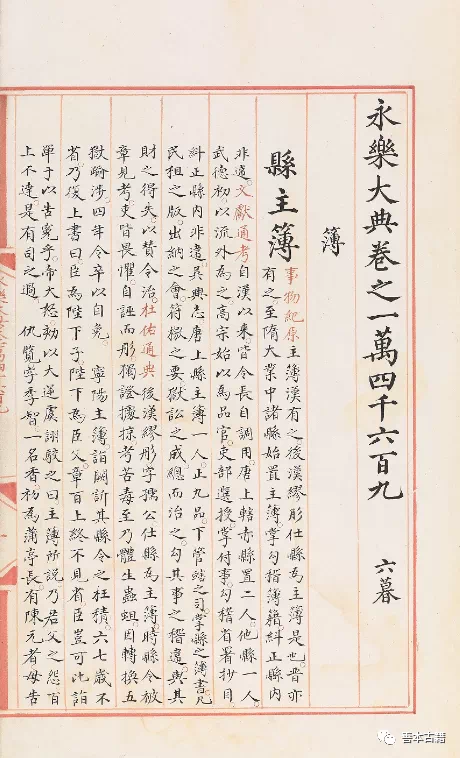 永樂大典卷之一萬四千六百九 六暮
簿
縣主簿
事物紀原主簿漢有之後漢繆彤仕縣為主簿是也晉亦
有之至隋大業中諸縣始置主簿掌勾稽簿籍糾正縣內
非違文獻通考自漢以來皆令長自調用唐上轄赤縣置二人他縣一人
武德初以流外為之高宗始以為品官吏部選授掌付事勾稽省署抄目
糾正縣內非違吳興志唐上縣主簿一人正九品下管轄之司掌縣之簿書凡
民租之版出納之會符檄之要獄訟之成總而治之勾其事之稽違與其
財之得失以贊令治杜佑通典後漢繆彤字孺公仕縣為主簿時縣令被
章見考吏皆畏懼自誣而彤獨證據掠考苦毒至乃體生蟲蛆因轉換五
獄踰涉四年令卒以自免 寧陽主簿詣闕訴其縣令之枉積六七歲不
省乃復上書曰臣為陛下子陛下為臣父章百上終不見省臣豈可北詣
單于以告冤乎帝大怒劾以大逆虞詡駮之曰主簿所說乃君父之怨百
上不達是有司之過 仇覽字季智一名香初為蒲亭長有陳元者母告
善本古籍